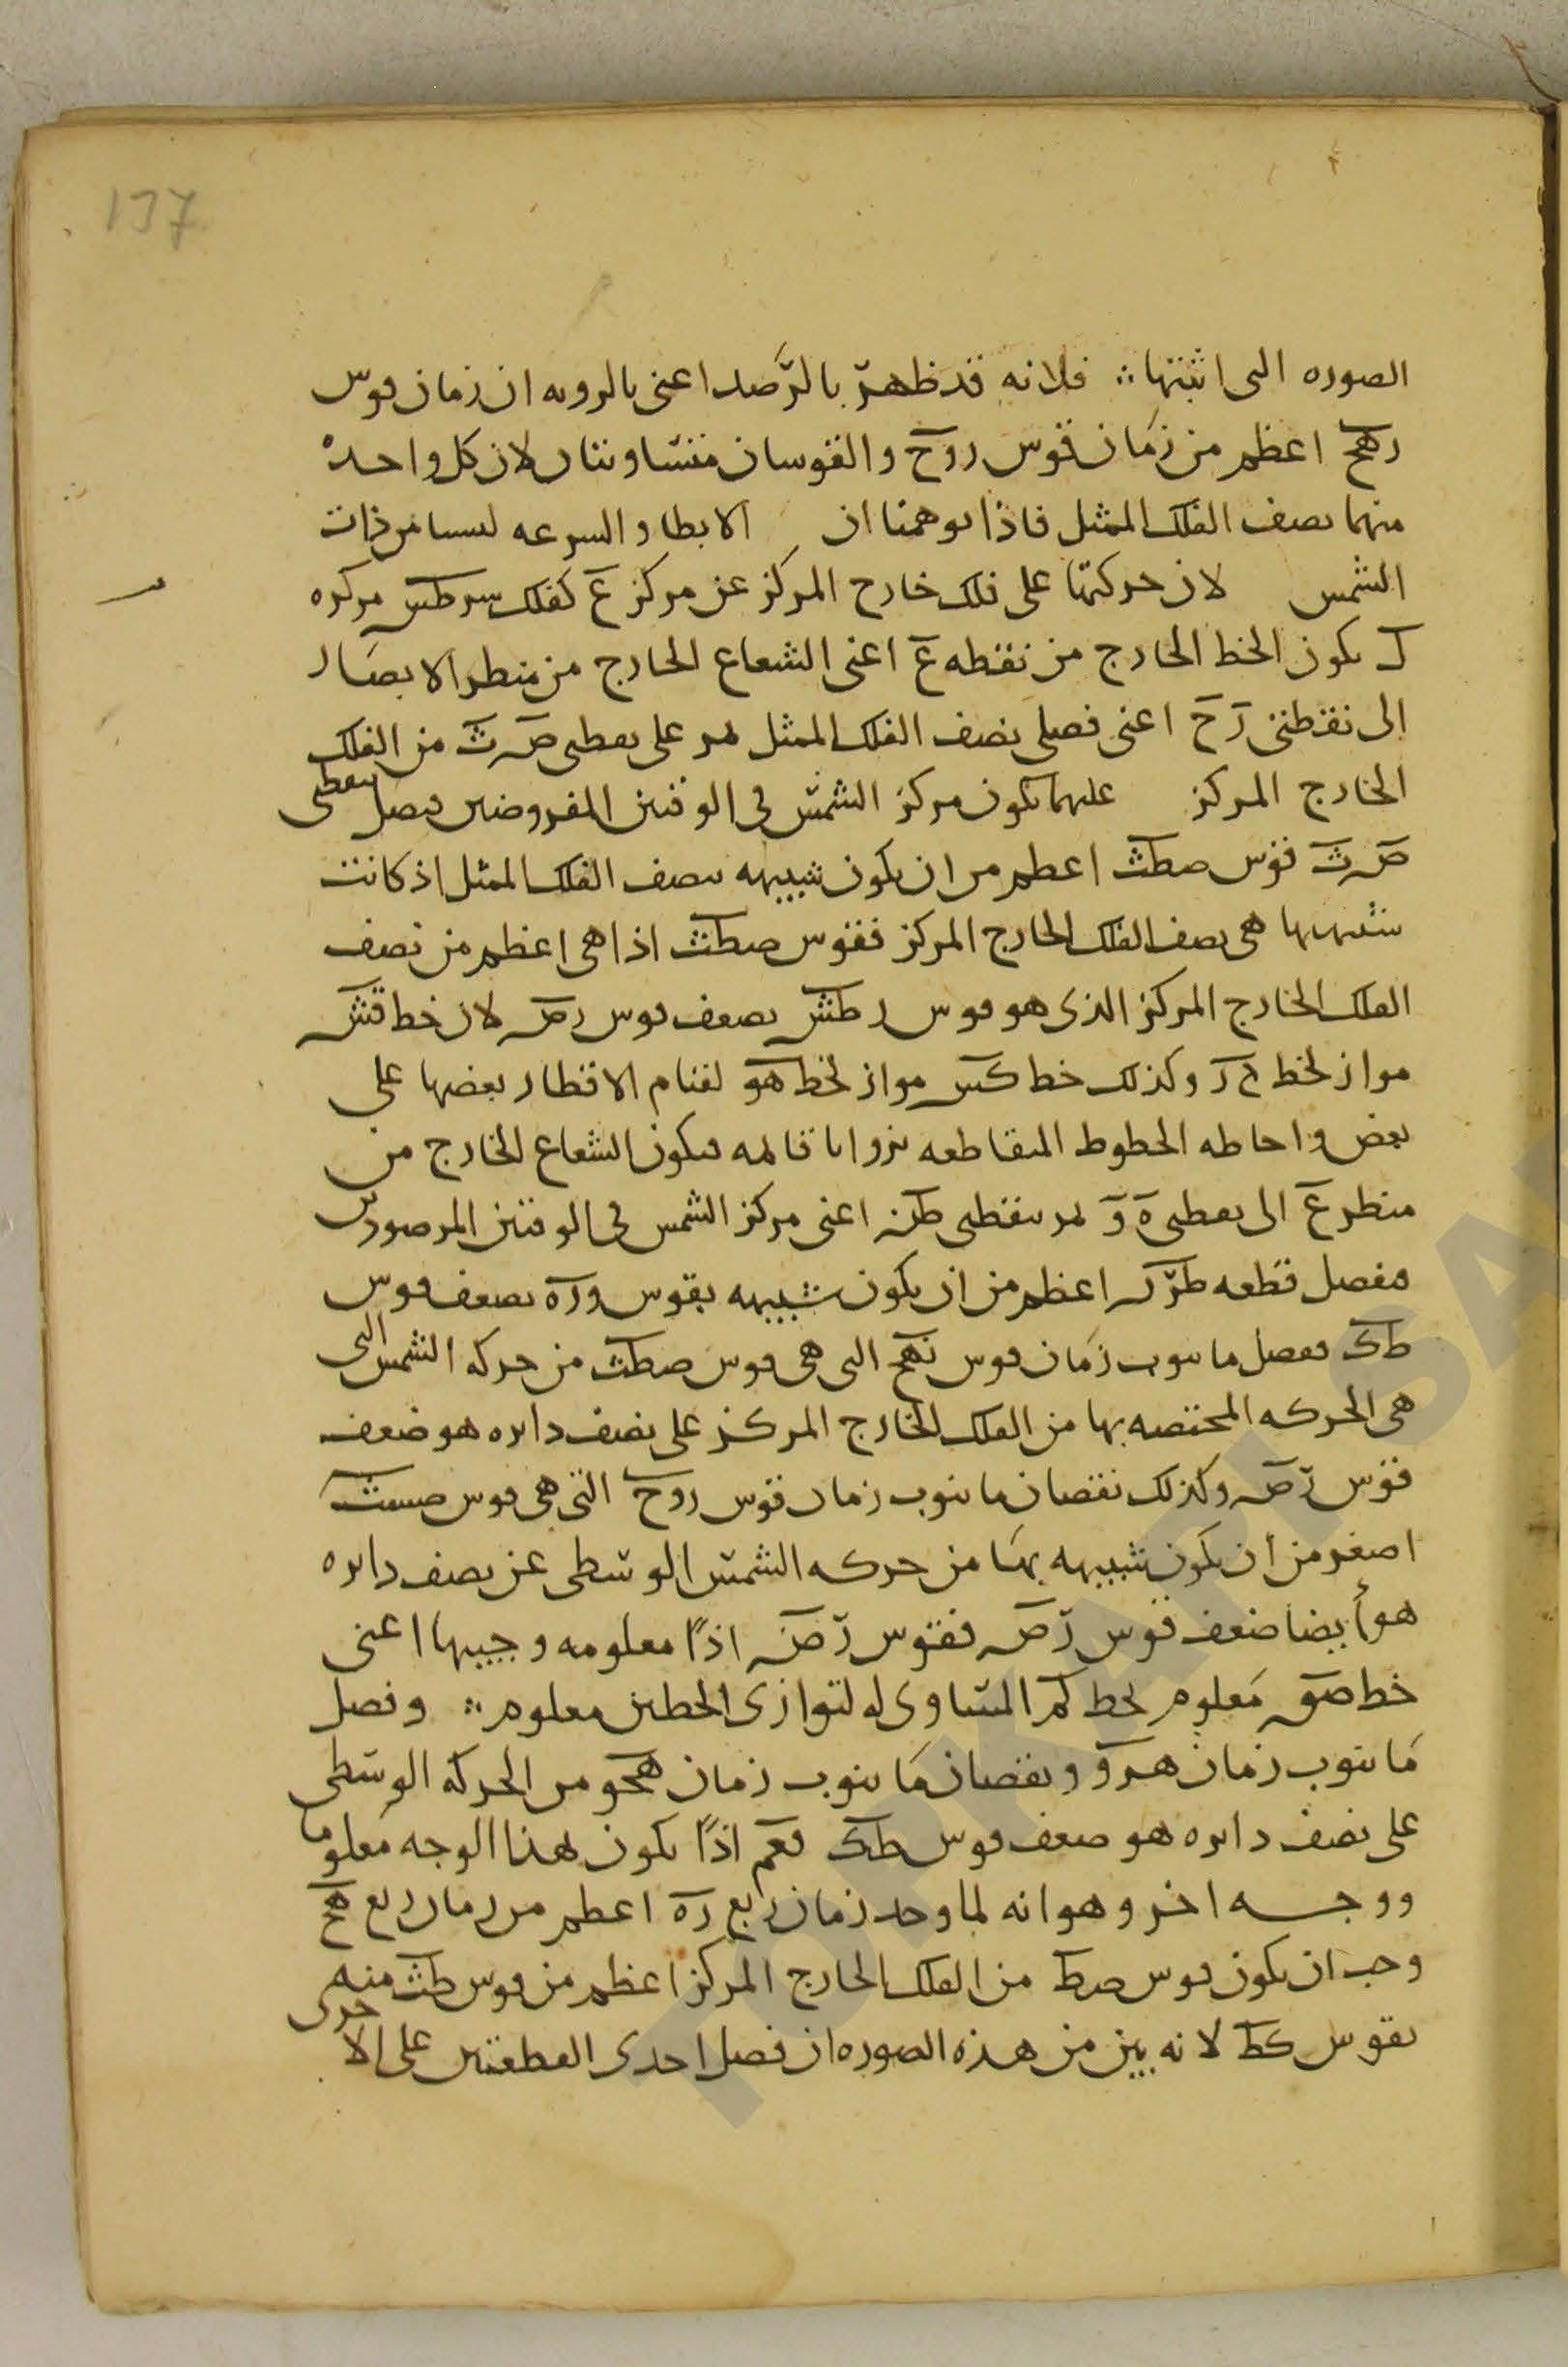 137
الصوره التى اثبتها ∴ فلانه قد ظهر بالرصد اعنى بالرويه ان زمان قوس
رهح اعظم من زمان قوس روح والقوسان متساويتان لان كل واحده
منهما نصف الفلك الممثل فاذا توهمنا ان الابطا والسرعه ليسا من ذات
الشمس لان حركتها على فلك خارج المركز عن مركز ع كفلك سرطس مركزه
ك يكون الخط الخارج من نقطه ع اعنى الشعاع الخارج من منظر الابصار
الى نقطتى ر ح اعنى فصلى نصف الفلك الممثل يمر على نقطتى ص ث من الفلك
الخارج المركز عليهما يكون مركز الشمس فى الوقتين المفروضين فيفصل نقطتى
ص ث قوس صطث اعظم من ان يكون شبيهه بنصف الفلك الممثل اذ كانت
شبيهتها هى نصف الفلك الخارج المركز فقوس صطث اذا هى اعظم من نصف
الفلك الخارج المركز الذى هو قوس رطش بضعف قوس رص لان خط قش
مواز لخط ح ر وكذلك خط كس مواز لخط هو لقيام الاقطار بعضها على
بعض واحاطه الخطوط المتقاطعه بزوايا قائمه فيكون الشعاع الخارج من
منظر ع الى نقطتى ه و يمر بنقطتى طن اعنى مركز الشمس فى الوقتين المرصودين
فيفصل قطعه طرن اعظم من ان يكون شبيهه بقوس وره بضعف قوس
طك ففصل ما ينوب زمان قوس رهح التى هى قوس صطث من حركه الشمس التى
هى الحركه المختصه بها من الفلك الخارج المركز على نصف دايره هو ضعف
قوس رص وكذلك نقصان ما ينوب زمان قوس روح التى هى قوس صسث
اصغر من ان يكون شبيهه بها من حركه الشمس الوسطى عن نصف دايره
هو أيضا ضعف قوس رص فقوس رص اذًا معلومه وجيبها اعنى
خط صق معلوم لخط كم المساوى له لتوازى الخطين معلوم ∴ وفصل
ما ينوب زمان هرو ونقصان ما ينوب زمان هحو من الحركه الوسطى
على نصف دايره هو ضعف قوس طك فعم اذًا يكون بهذا الوجه معلوما
ووجه اخر وهو انه لما وجد زمان ربع ره اعظم من زمان ربع هح
وجب ان يكون قوس صط من الفلك الخارج المركز اعظم من قوس طث منه
بقوس كط لانه بين من هذه الصوره ان فصل احدى القطعتين على الاخرى